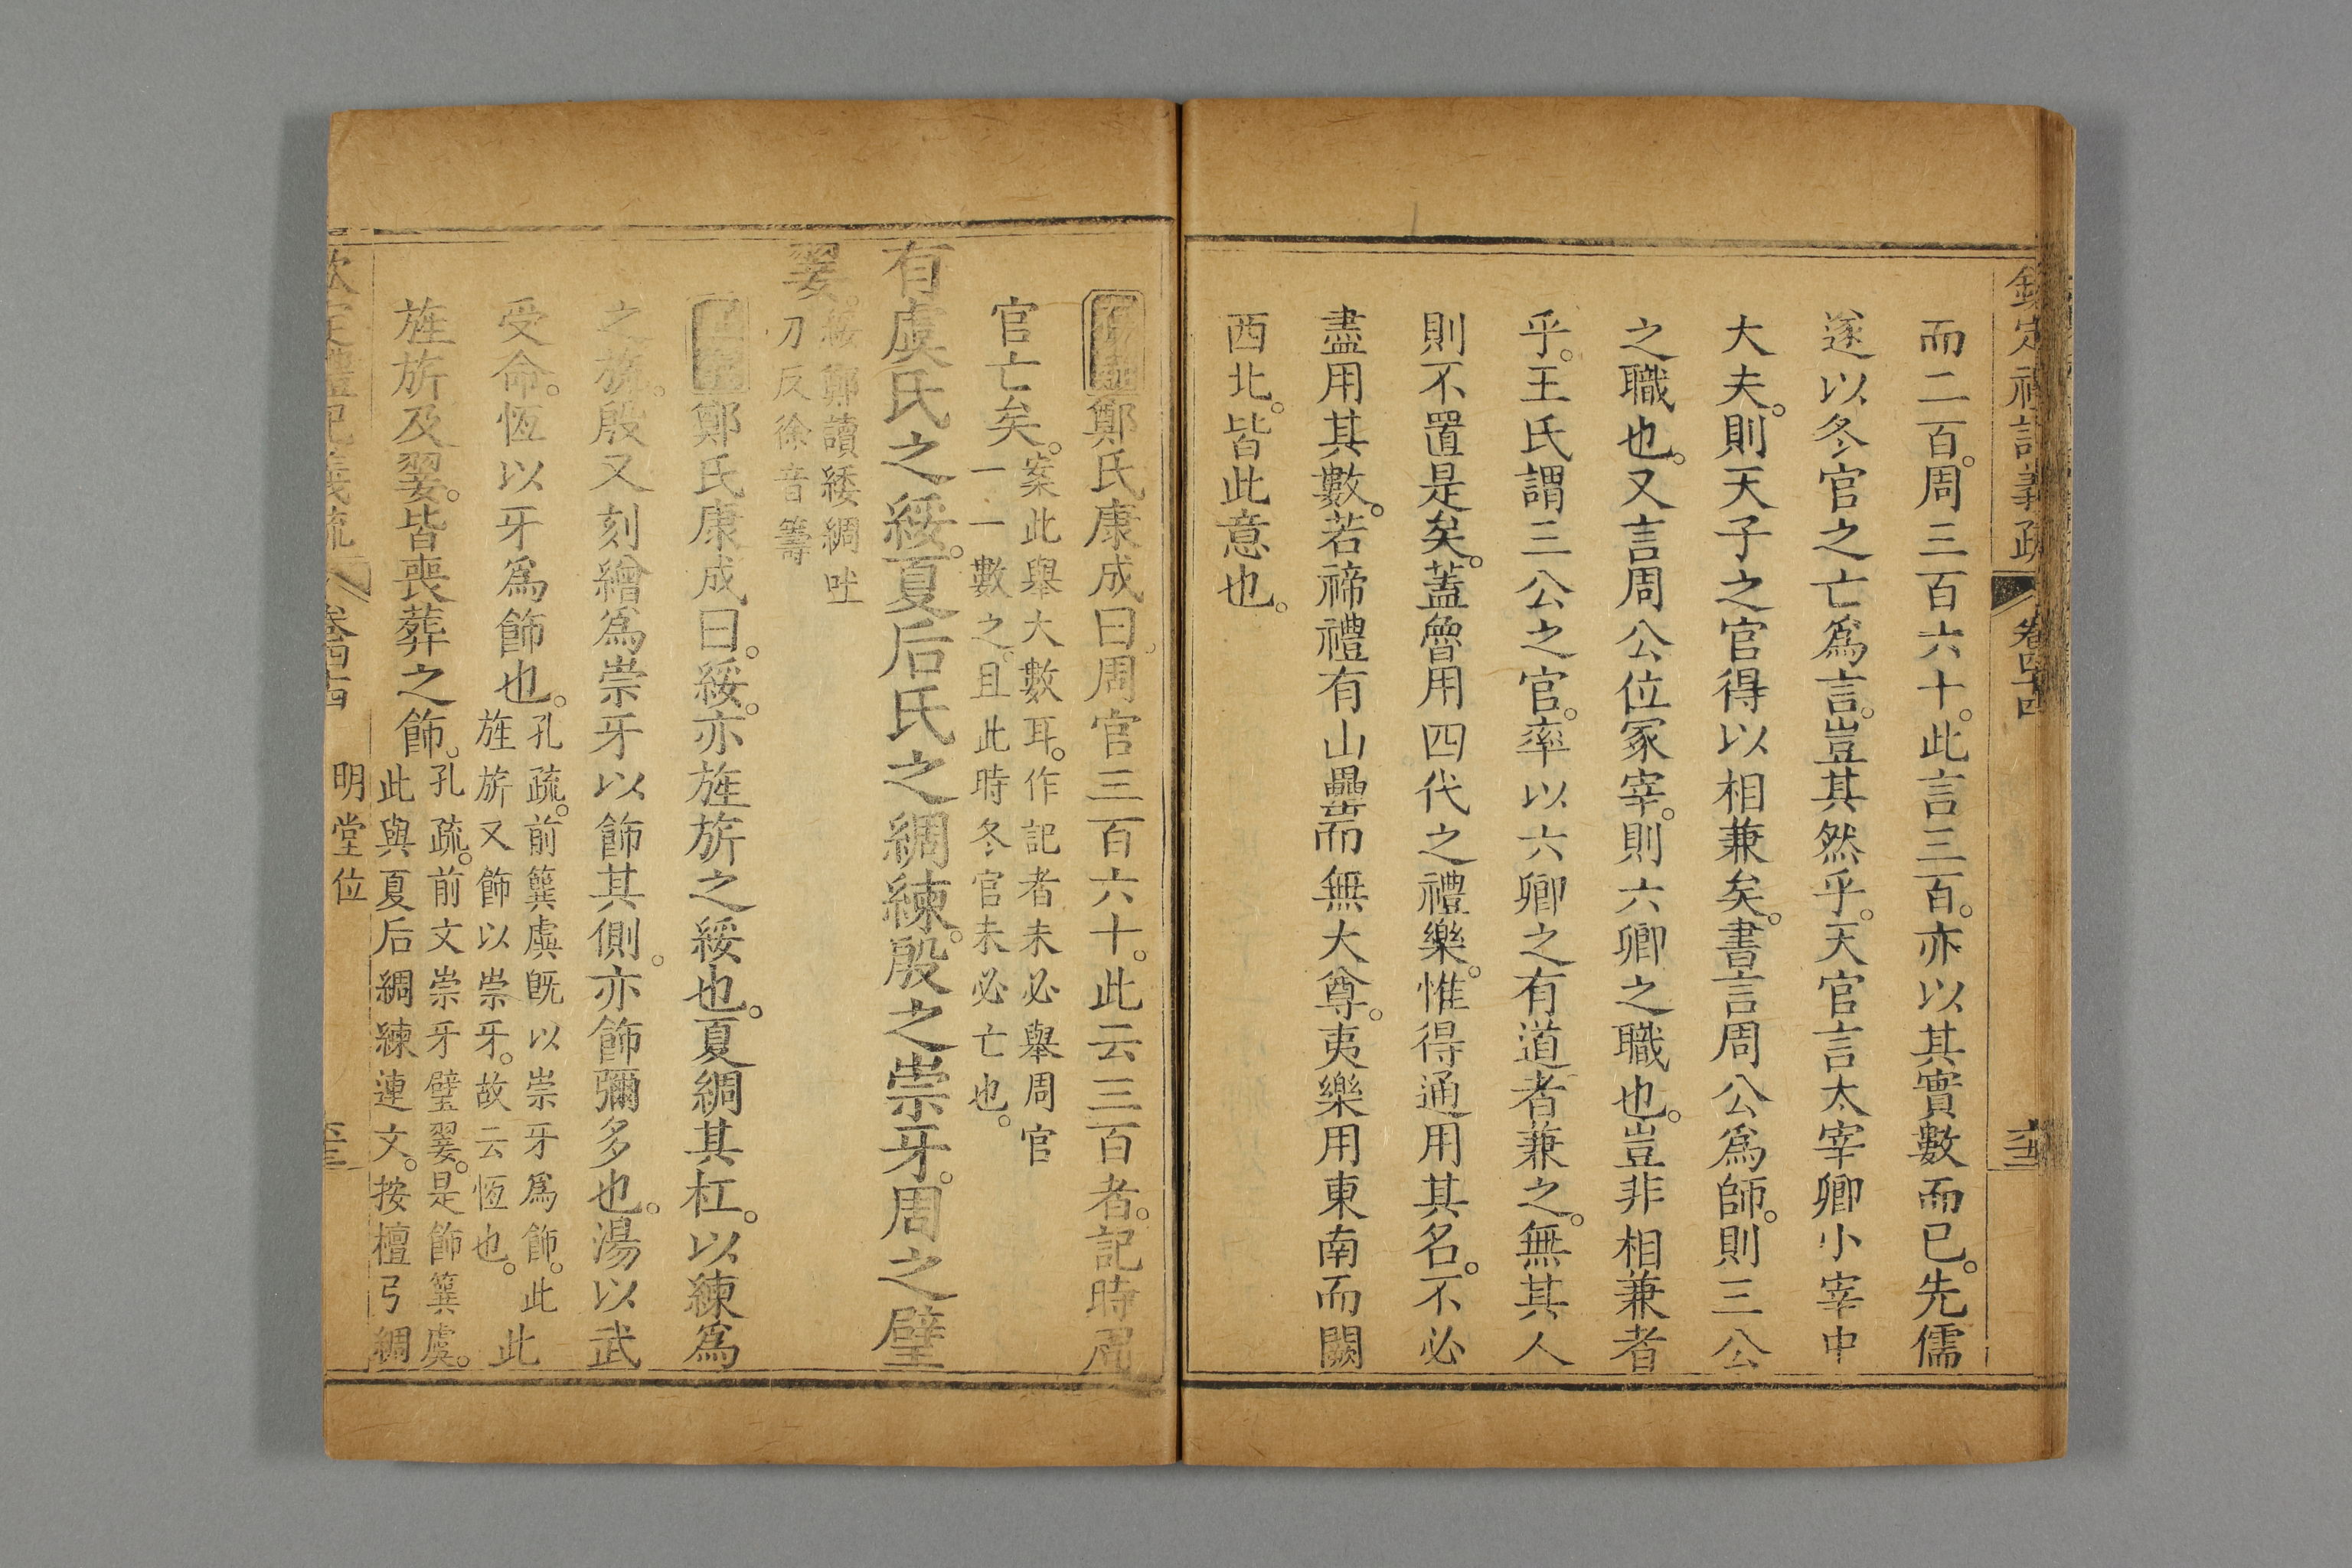 欽定禮記義疏 卷四十四
而二百。周三百六十。此言三百。亦以其實數而已。先儒
遂以冬官之亡爲言。豈其然乎。天官言太宰卿小宰中
大夫。則天子之官得以相兼矣。書言周公爲師。則三公
之職也。又言周公位冢宰。則六卿之職也。豈非相兼者
乎。王氏謂三公之官。率以六卿之有道者兼之。無其人
則不置是矣。蓋魯用四代之禮樂。惟得通用其名。不必
盡用其數。若禘禮有山罍而無大尊。夷樂用東南而闕
西北。皆此意也。
鄭氏康成曰。周官三百六十。此云三百者。記時冬
官亡矣。案此舉大數耳。作記者未必舉周官
一一數之。且此時冬官未必亡也。
有虞氏之綏。夏后氏之綢練。殷之崇牙。周之璧
翣。綏鄭讀緌綢吐
刀反徐音籌
鄭氏康成曰。綏。亦旌旂之綏也。夏綢其杠。以練爲
之旒。殷又刻繒爲崇牙以飾其側。亦飾彌多也。湯以武
受命。恆以牙爲飾也。孔疏。前簨虡旣以崇牙爲飾。此
旌旂又飾以崇牙。故云恆也。此
旌旂及翣。皆喪葬之飾。孔疏。前文崇牙璧翣。是飾簨虡。
此與夏后綢練連文。按檀弓綢
欽定禮記義疏 卷四十四 明堂位